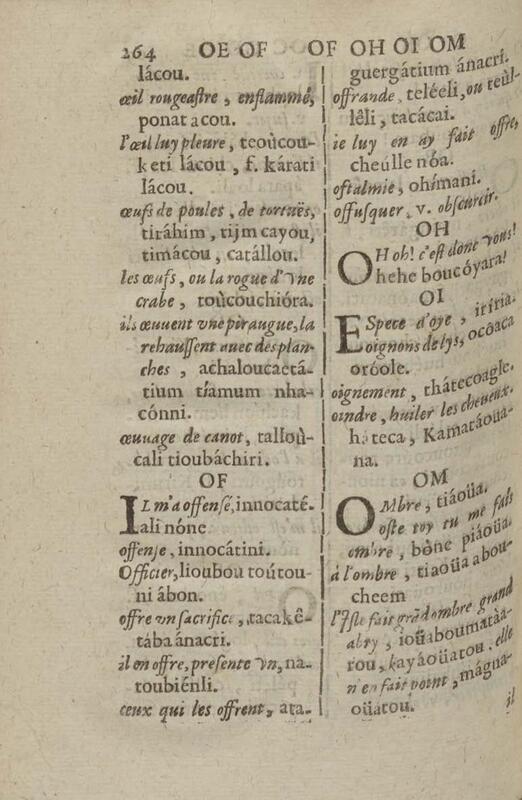 264 OE OF OF OH OI OM
lácou.
œil rougeastre, enflammé,
ponatacou.
l'œil luy pleure, teoùcou-
keti lácou, f. kárati
lácou.
œufs de poules, de tortuës,
tiráhim, tijm cayou,
timácou, catállou.
les œufs, ou la rogue d'vne
crabe, toùcouchióra.
ils œuuent vne piraugue, la
rehaussent auec des plan-
ches, achaloucaetá-
tium tíamum nha-
cónni.
œuuage de canot, talloù-
cali tioubáchiri.
OF
IL m'a offensé, innocaté-
ali nóne
offense, innocátini.
Officier, lioubou toútou-
ni ábon.
offre vn sacrifice, tacakê-
tába ánacri.
il en offre, presente vn, na-
toubiénli.
ceux qui les offrent, ata-
guergátium ánacri.
offrande, teléeli, ou teùl-
lêli, tacácai.
ie luy en ay fait offre,
cheulle nóa.
oftalmie, ohímani.
offusquer, v. obscurcir.
OH
OH oh! c'est donc vous!
hehe boucóyara!
OI
ESpece d'oye, iríria.
oignons de lys, ocôaca
oróole.
oignement, thátecoagle.
oindre, huiler les cheueux,
háteca, Kamatáoüa-
na.
OM
OMbre, tiáoüa.
oste toy tu me fais
ombre, bône piáoüa.
à l'ombre, tiaoüa abou-
cheem
l'Isle fait grãd ombre grand
abry, ioüaboumatàa-
rou, kayáoüatou. elle
n'en fait point, mágna-
oüatou.
il